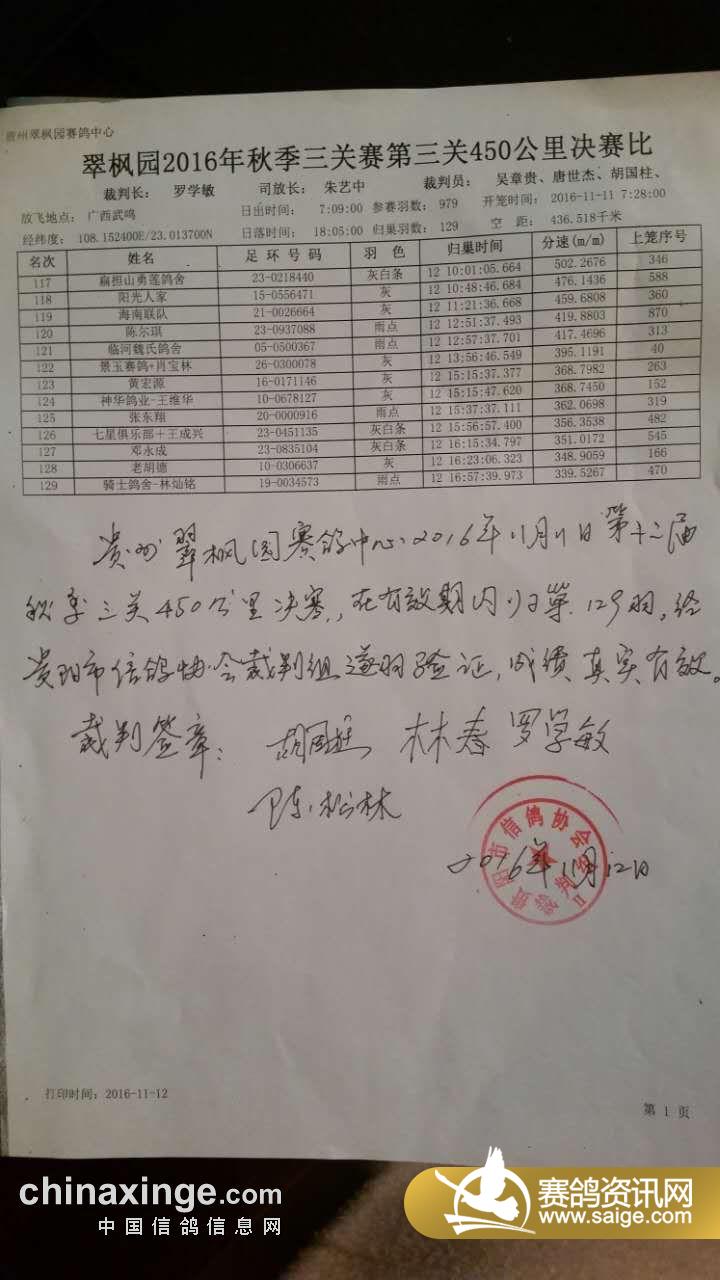 贵州翠枫园赛鸽中心
翠枫园2016年秋季三关赛第三关450公里决赛比
裁判长： 罗学敏 司放长： 朱艺中 裁判员： 吴章贵、唐世杰、胡国柱、
放飞地点： 广西武鸣 日出时间： 7:09:00 参赛羽数： 979 开笼时间： 2016-11-11 7:28:00
经纬度： 108.152400E/23.013700N 日落时间： 18:05:00 归巢羽数： 129 空 距： 436.518千米
名次 姓名 足 环 号 码 羽 色 归巢时间 分速(m/m) 上笼序号
117 扁担山勇莲鸽舍 23-0218440 灰白条 12 10:01:05.664 502.2676 346
118 阳光人家 15-0556471 灰 12 10:48:46.684 476.1436 588
119 海南联队 21-0026664 灰 12 11:21:36.668 459.6808 360
120 陈尔琪 23-0937088 雨点 12 12:51:37.493 419.8803 870
121 临河魏氏鸽舍 05-0500367 雨点 12 12:57:37.701 417.4696 313
122 景玉赛鸽+肖宝林 26-0300078 灰 12 13:56:46.549 395.1191 40
123 黄宏源 16-0171146 灰 12 15:15:37.377 368.7982 263
124 神华鸽业-王维华 10-0678127 灰 12 15:15:47.620 368.7450 152
125 张东翔 20-0000916 雨点 12 15:37:37.111 362.0698 319
126 七星俱乐部＋王成兴 23-0451135 灰白条 12 15:56:57.400 356.3538 482
127 邓永成 23-0835104 灰白条 12 16:15:34.797 351.0172 545
128 老胡德 10-0306637 灰 12 16:23:06.323 348.9059 166
129 骑士鸽舍-林灿铭 19-0034573 雨点 12 16:57:39.973 339.5267 470
贵州翠枫园赛鸽中心2016年11月11日第十二届
秋季三关450公里决赛，在有效期内归巢129羽，经
贵阳市信鸽协会裁判组逐羽验证，成绩真实有效。
裁判签章： 胡国柱 林春 罗学敏
陈松林
贵阳市信鸽协会
裁判
2016年11月12日
打印时间：2016-11-12
第 1 页
chinaxinge.com
中国信鸽信息网
赛鸽资讯网
www.saige.com